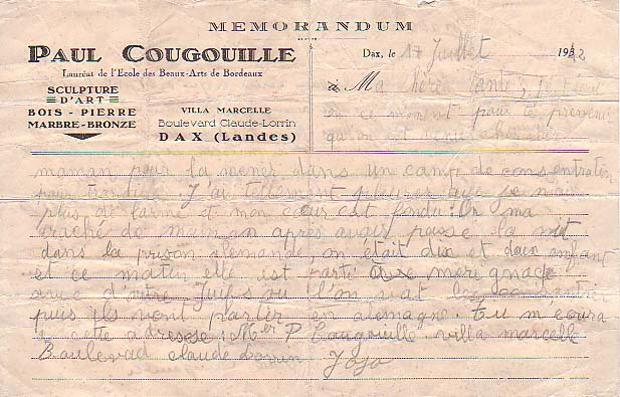 MEMORANDUM
PAUL COUGOUILLE
Lauréat de l'Ecole des Beaux-Arts de Bordeaux
SCULPTURE
D'ART
BOIS - PIERRE
MARBRE-BRONZE
VILLA MARCELLE
Boulevard Claude-Lorrin
DAX (Landes)
Dax, le 17 Juillet 1942
Ma chère tante,
en ce moment pour te prévenir
qu'on est venue chercher
maman pour la mener dans un camp de consentration
pour travaille. J'ai tellement pleurer que je n'ai
plus de larme et mon cœur est fendu. On m'a
craché de maman appres avais passe la nuit
dans la prison alemande, on était dix et deux enfant
et ce matin elle est parti
avec d'autre Juifs
puis ils vont partir en alemagne. Tu m'écrira
a cette adresse : Mer P Cougouille villa marcelle
Boulevad claude Lorrin Jojo